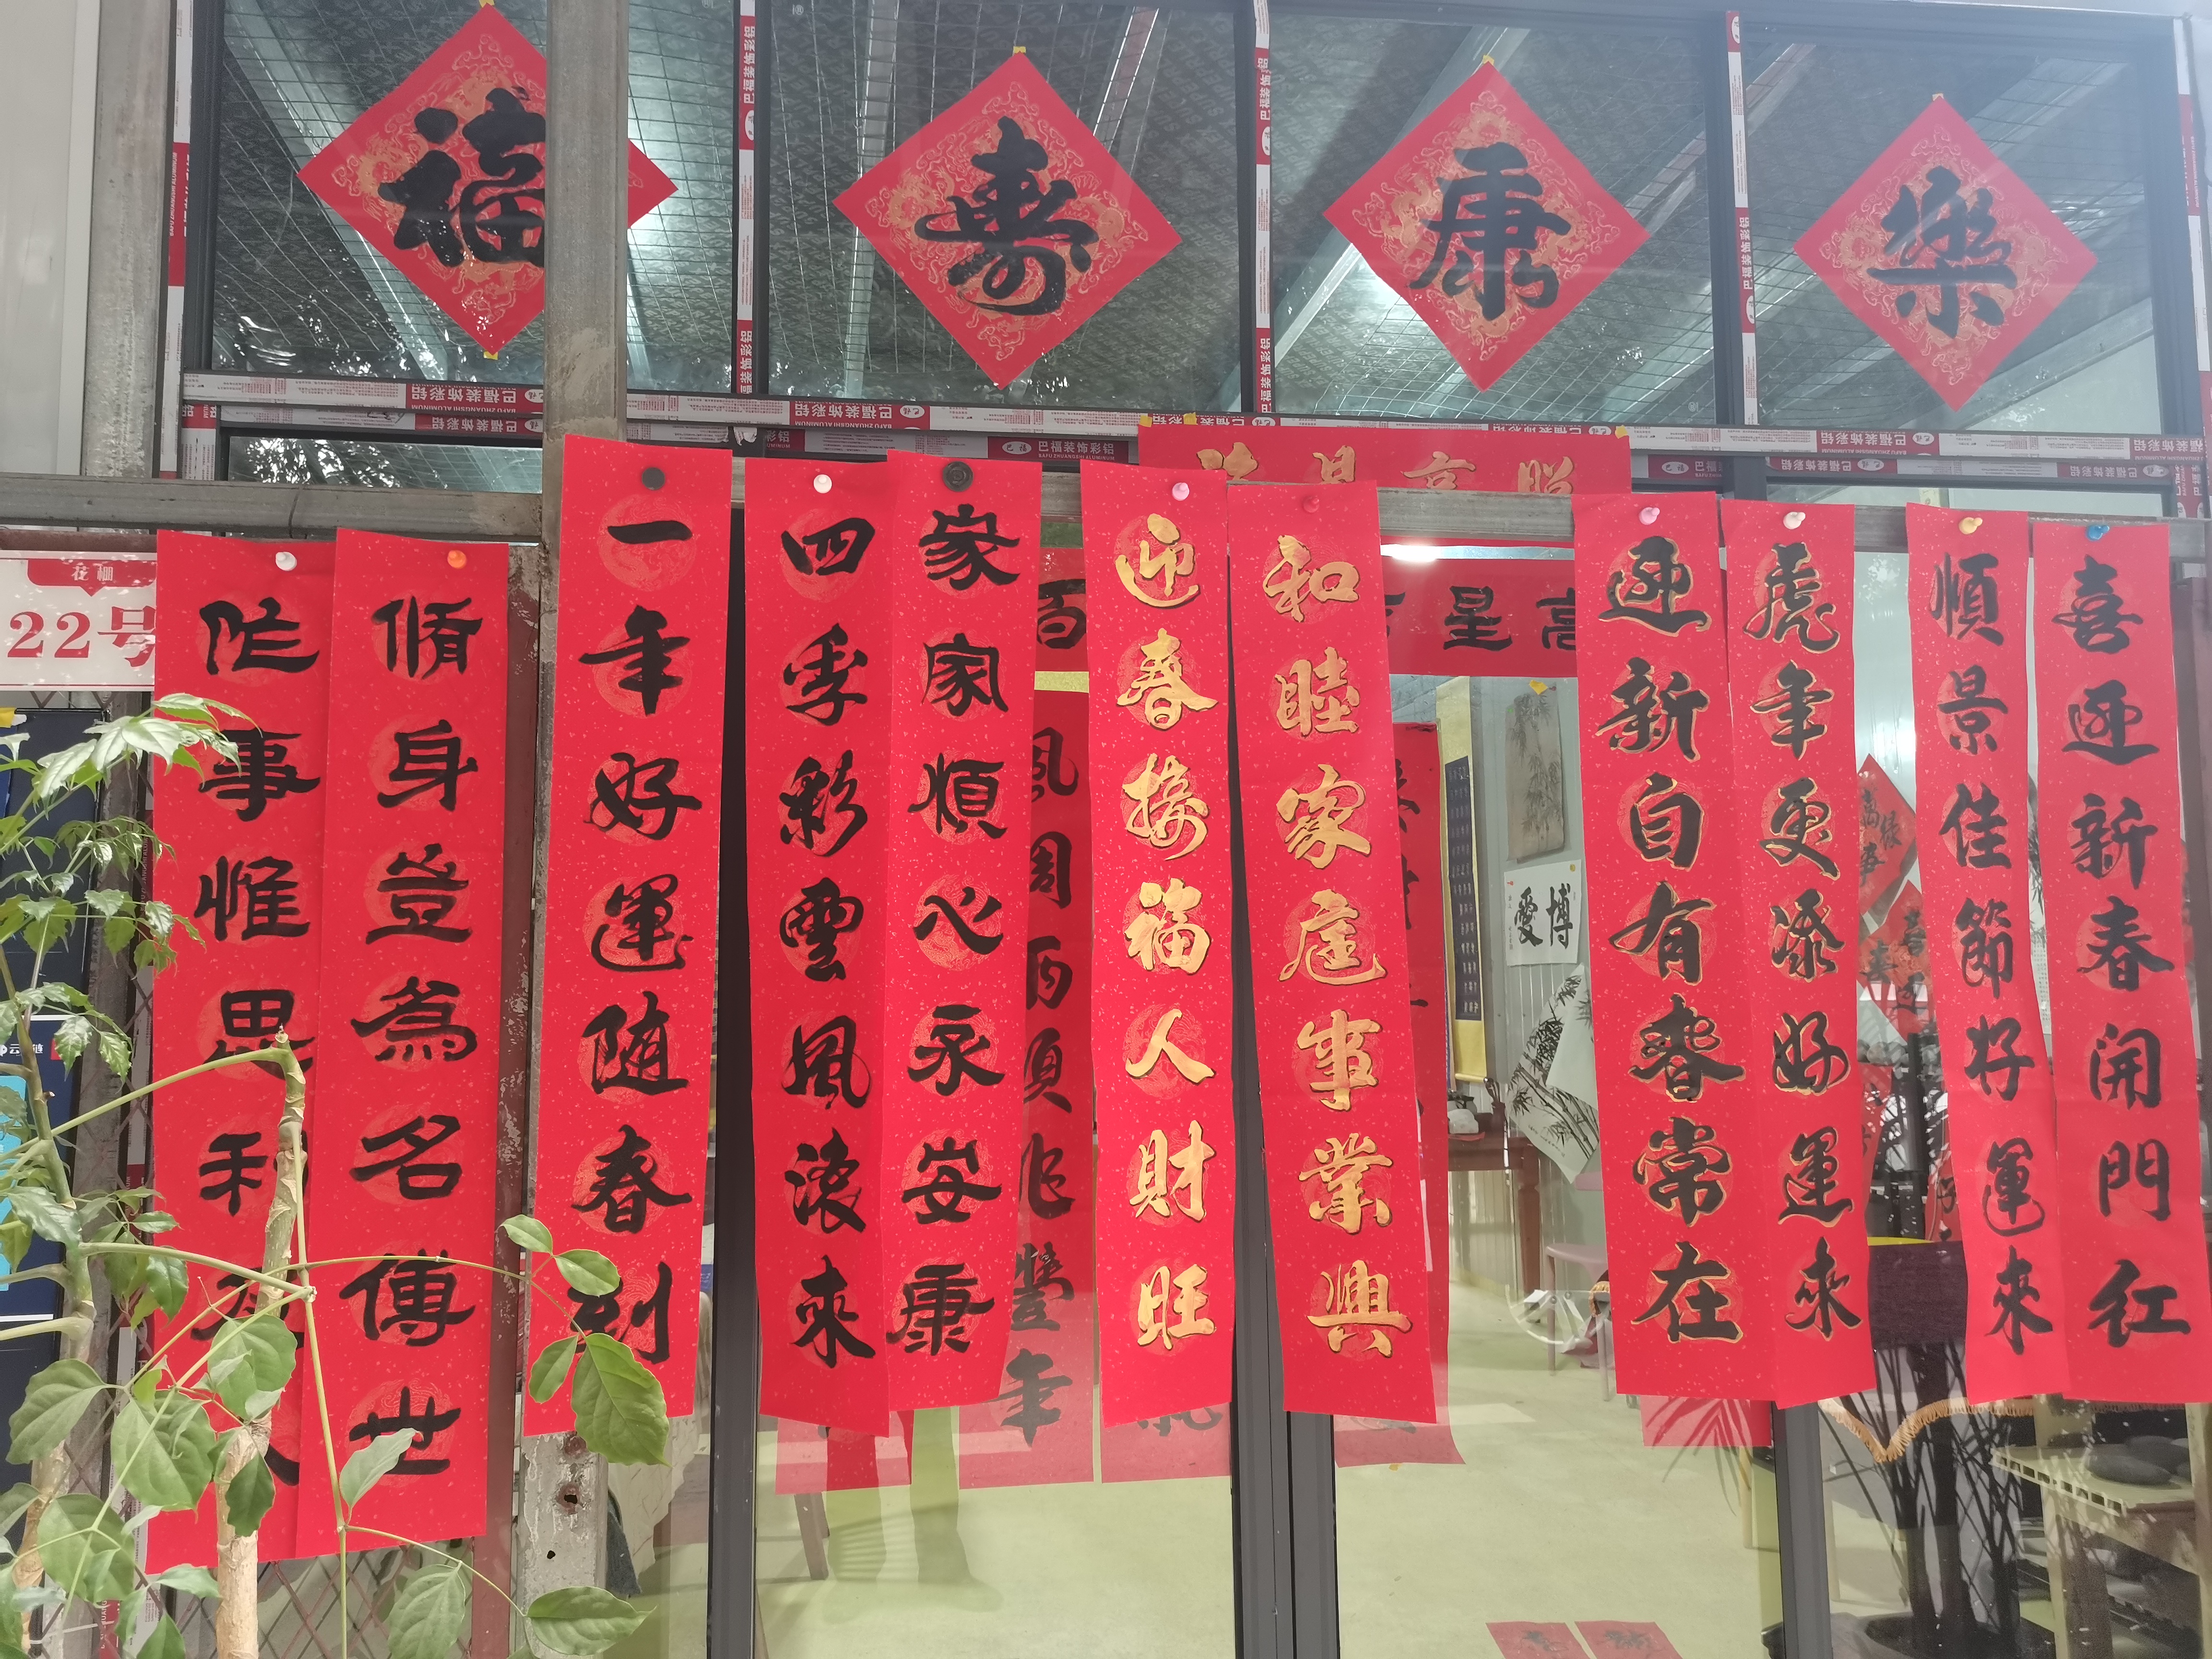 福
壽
康
樂
巴福装饰彩铝
BAFU ZHUANGSHI ALUMINUM
花栅
22号
修身豈為名傳世
作事惟思利
一年好運随春到
四季彩雲風滾來
家家順心永安康
風調雨順兆豐年
迎春接福人財旺
和睦家庭事業興
星高照
百
星高
迎新自有春常在
虎年更添好運來
順景佳節好運來
喜迎新春開門红
博愛